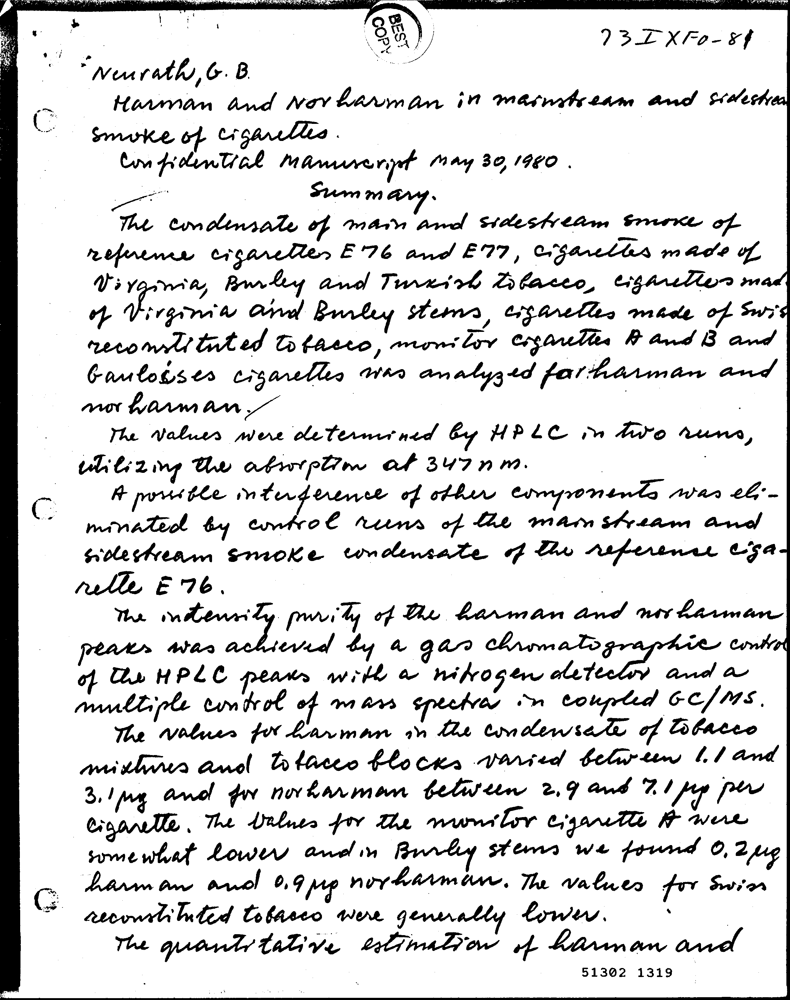 BEST
COPY
73IXF0-81
Neurath, G. B.
Harman and Norharman in mainstream and sidestrea
smoke of cigarettes.
Confidential Manuscript May 30, 1980.
Summary.
The condensate of main and sidestream smoke of
reference cigarettes E76 and E77, cigarettes made of
Virginia, Burley and Turkish tobacco, cigarettes mad
of Virginia and Burley stems, cigarettes made of Swis
reconstituted tobacco, monitor cigarettes A and B and
Gauloises cigarettes was analyzed for harman and
norharman.
The values were determined by HPLC in two runs,
utilizing the absorption at 347 nm.
A possible interference of other components was eli-
minated by control runs of the mainstream and
sidestream smoke condensate of the reference ciga-
rette E 76.
The intensity purity of the harman and norharman
peaks was achieved by a gas chromatographic control
of the HPLC peaks with a nitrogen detector and a
multiple control of mass spectra in coupled GC/MS.
The values for harman in the condensate of tobacco
mixtures and tobacco blocks varied between 1.1 and
3.1 µg and for norharman between 2.9 and 7.1 µg per
cigarette. The values for the monitor cigarette A were
somewhat lower and in Burley stems we found 0.2 µg
harman and 0.9 µg norharman. The values for Swiss
reconstituted tobacco were generally lower.
The quantitative estimation of harman and
51302 1319